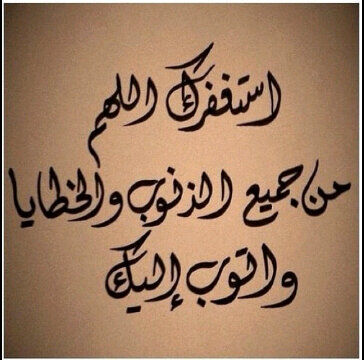 استغفرك اللهم
من جميع الذنوب والخطايا
واتوب إليك